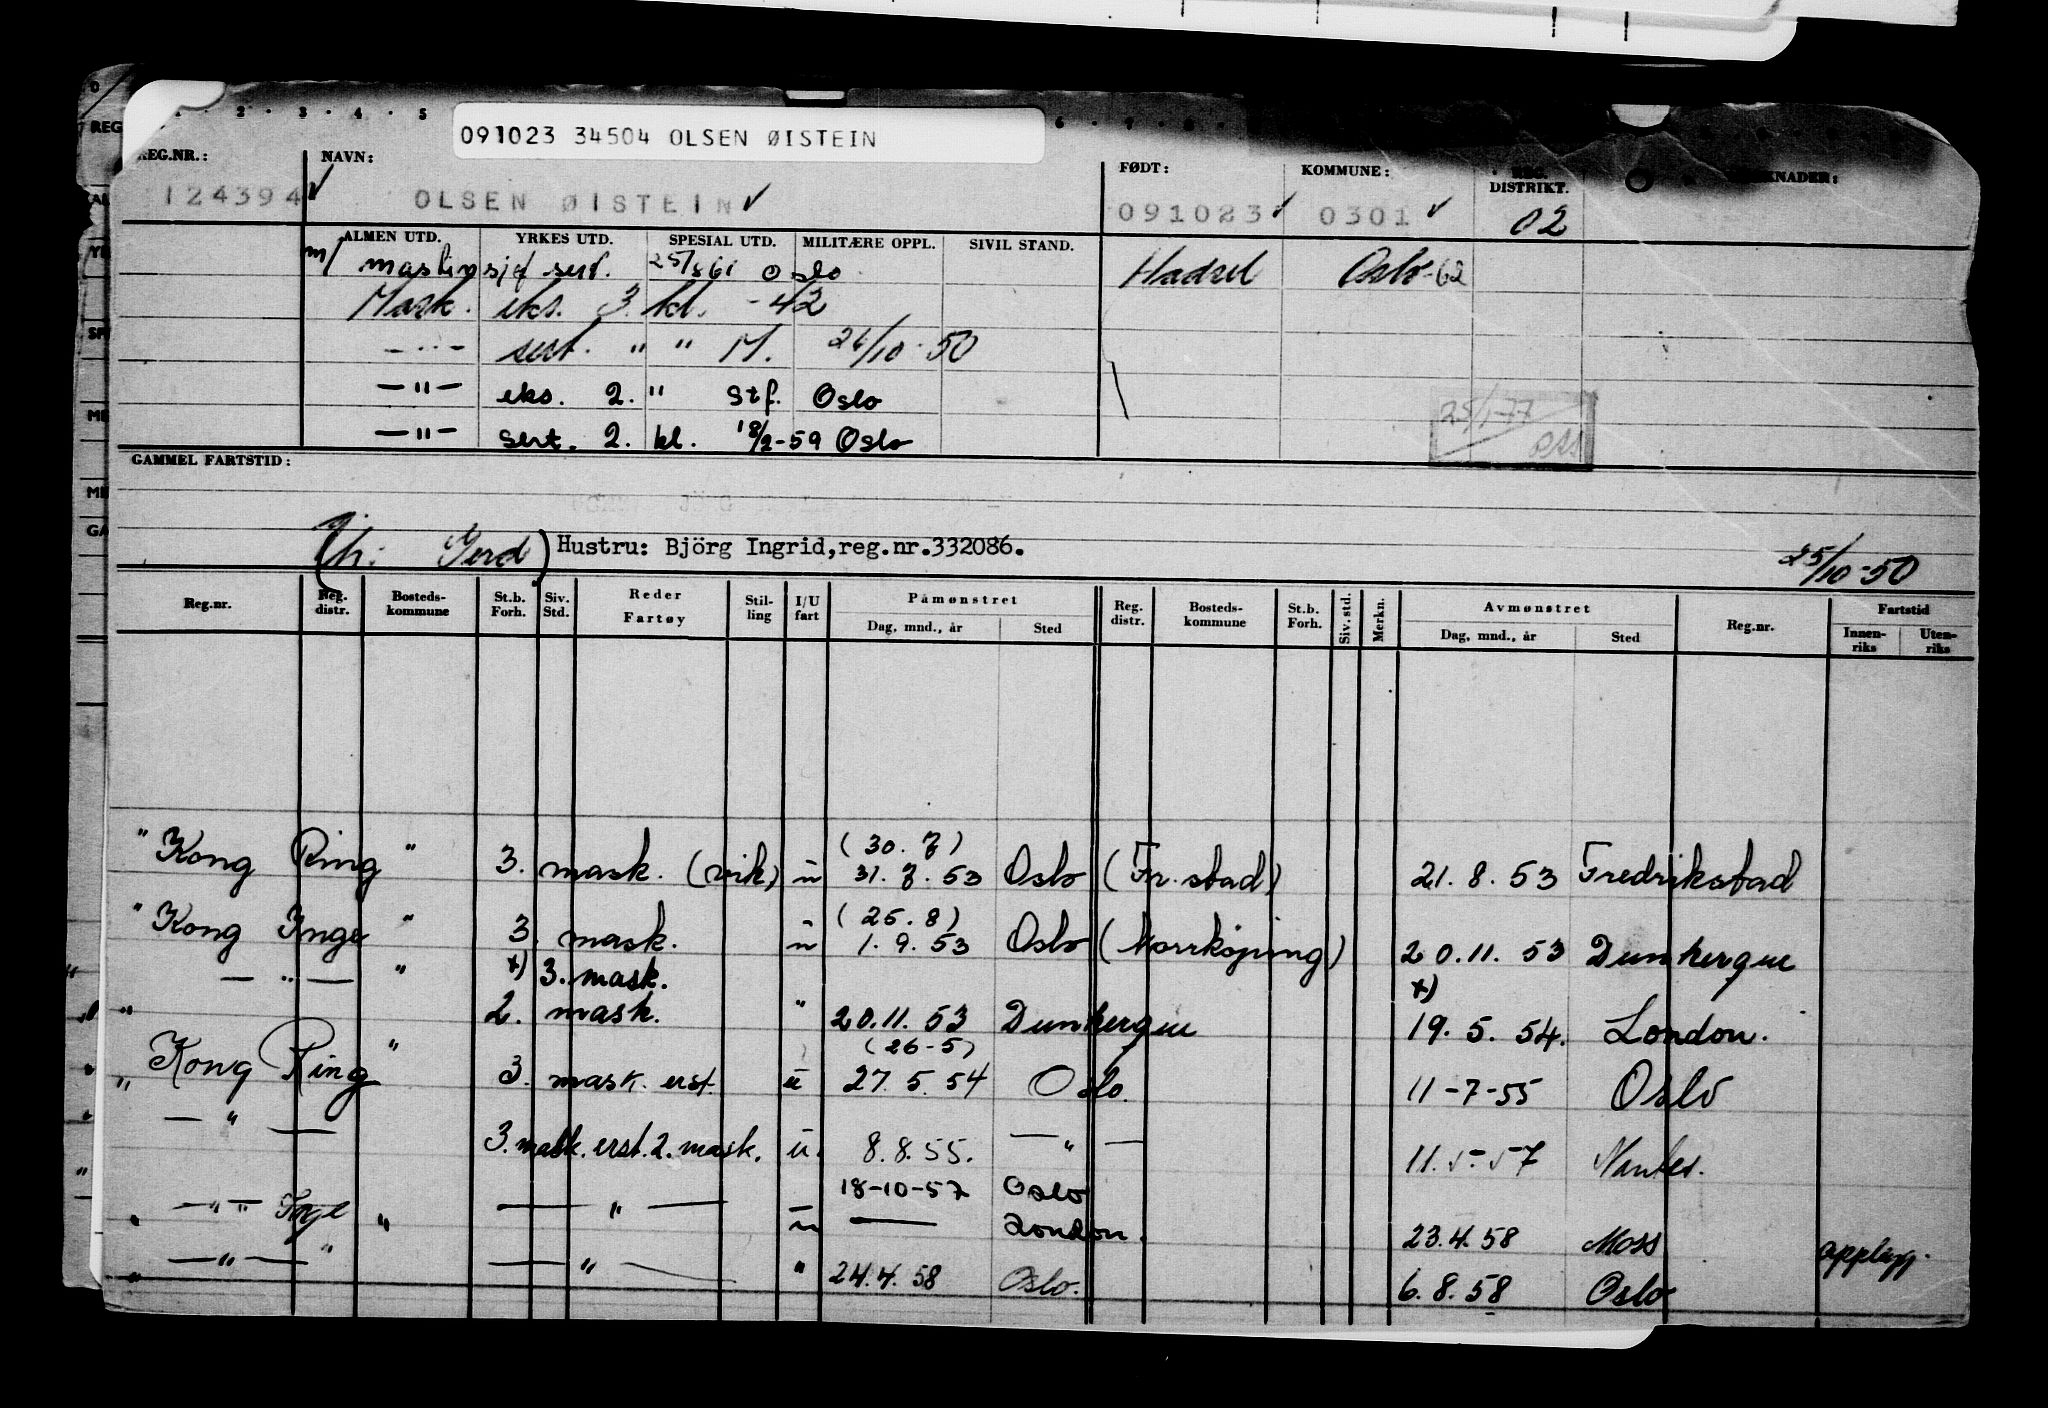 091023 34504 OLSEN ØISTEIN
1 · 2 · 3 · 4 · 5
REG.NR.: NAVN: FØDT: KOMMUNE: REG. DISTRIKT.
124394 OLSEN ØISTEIN 091023 0301 02
ALMEN UTD. YRKES UTD. SPESIAL UTD. MILITÆRE OPPL. SIVIL STAND.
m/ maskinsjef sert. 25/5 61 Oslo Hadsel Oslo-62
Mask. eks. 3. kl. -42
— " — sert. " " M. 26/10-50
— " — eks. 2. " Stf. Oslo
— " — sert. 2. kl. 18/2-59 Oslo
25/1-77
GAMMEL FARTSTID:
Gerd) Hustru: Björg Ingrid, reg.nr.332086.
25/10-50
Reg.nr. Reg. distr. Bosteds-kommune St.b. Forh. Siv. Std. Reder Fartøy Stil-ling I/U fart Påmønstret Dag, mnd., år Sted Reg. distr. Bosteds-kommune St.b. Forh. Siv. std. Merkn. Avmønstret Dag, mnd., år Sted Reg.nr. Fartstid Innen-riks Uten-riks
"Kong Ring" 3. mask. (vik) u (30.7) 31.7.53 Oslo (Fr.stad) 21.8.53 Fredrikstad
"Kong Inge" 3. mask. u (25.8) 1.9.53 Oslo (Norrköping) 20.11.53 Dunkerque
— " — " x) 3. mask. x)
" 2. mask. " 20.11.53 Dunkerque 19.5.54. London.
"Kong Ring" 3. mask. erst. u (26-5) 27.5.54 Oslo. 11-7-55 Oslo
— " — 3. mask. erst. 2. mask. u. 8.8.55. — " — 11.5.57 Nantes.
" — " — Inge " — " — u 18-10-57 Oslo
— London. 23.4.58 Moss opplegg.
" — " — " — " — " 24.4.58 Oslo. 6.8.58 Oslo